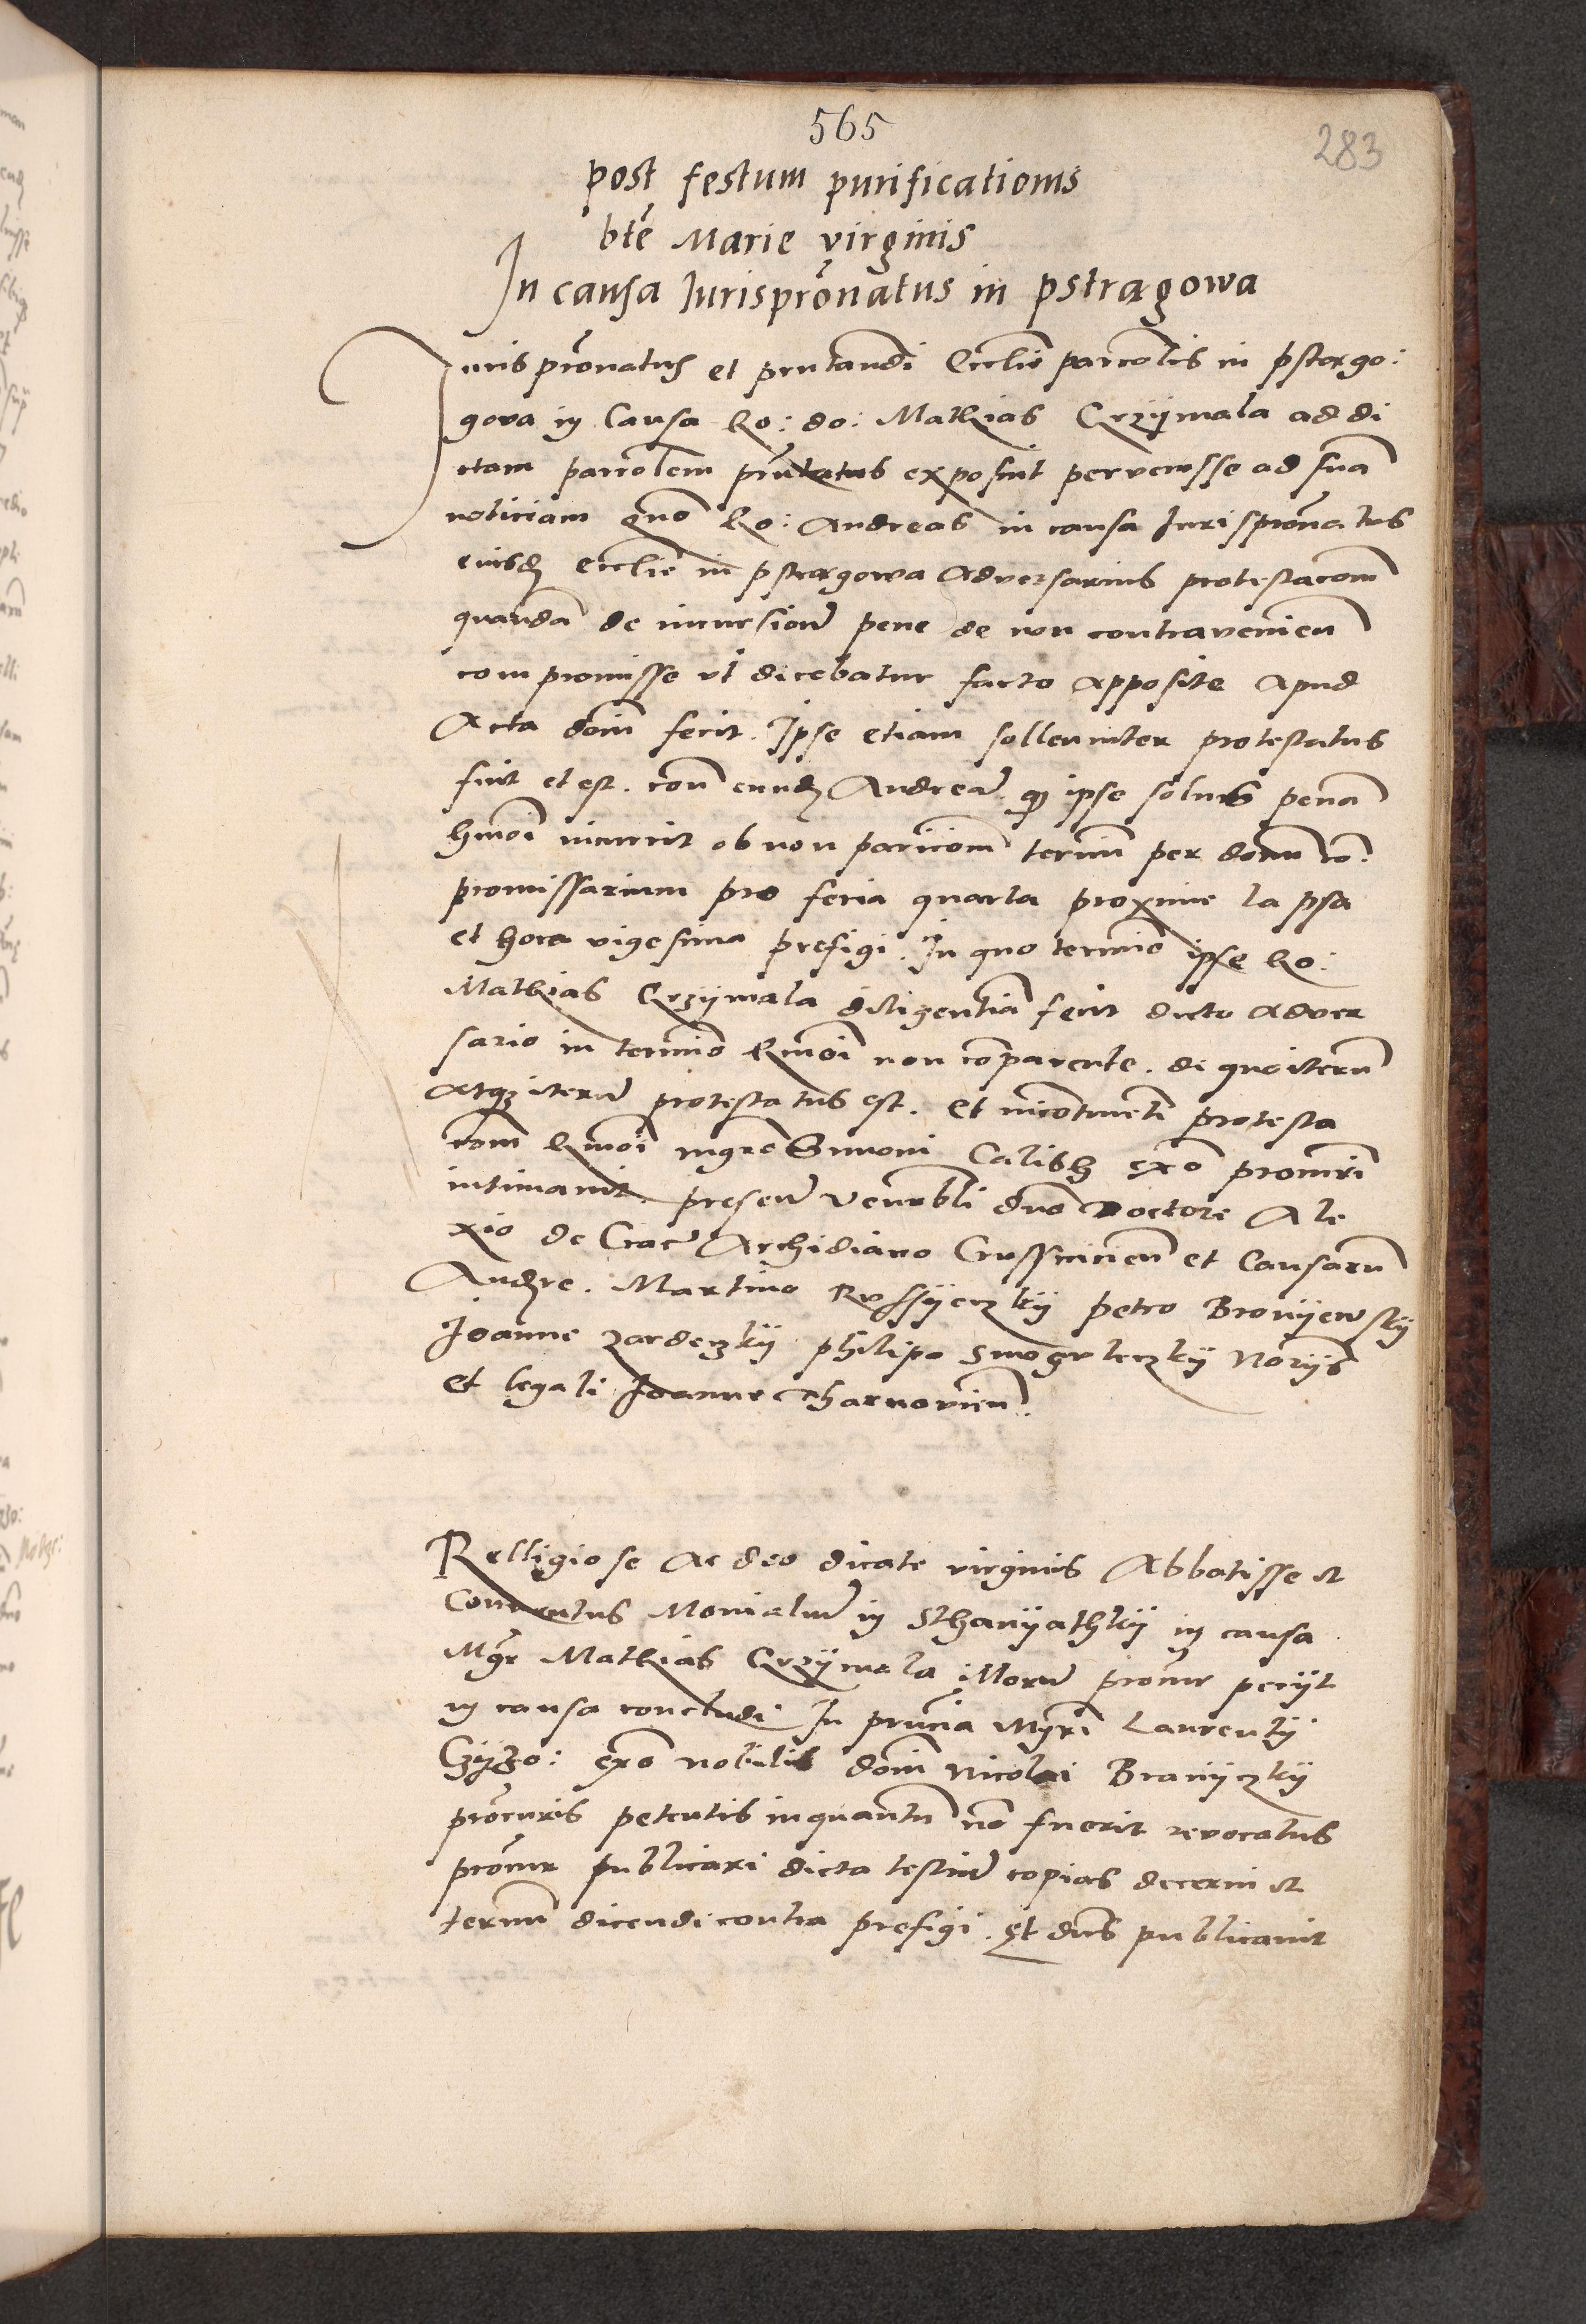 565
283
post festum purificationis
bte Marie virginis
In causa Jurisprõnatus in pstragowa
Juris prõnatus et pñtandi Ecclie parrolis in pstrgo:
gowa in Causa Ho: do: Mathias Grzÿmala ad di
ctam parrolem pñtatus exposuit pervenisse ad suã
noticiam quo Ho: Andreas in causa Jurisprõnatus
eiusdẽ Ecclie in pstragowa Adversarius protestacom̃
quandã de incursione pene de non contravenien̄
compromisse vt dicebatur facto apposite Apud
Acta dom̃ fecit. Ipse etiam sollenniter protestatus
fuit et est. con̄ eundẽ Andreã ꝙ ipse solus penã
hm̃oi incurrit ob non paricom̃ termini per dom̃ co:
promissarium pro feria quarta proxime lapsa
et hora vigesima prefigi. In quo termino ipse Ho:
Mathias Grzÿmala diligentiã fecit dicto adver
sario in termino hm̃oi non cõparente. de quo iterũ
atqꝫ iterũ protestatus est. Et incõtinẽti protesta
com̃ hm̃oi mgrõ Simoni Calish exõ procuri
intimavit. presen̄ venrbli dño Doctore Ale
xio de Crac̃ Archidiano Crussvicien̄ et Causarũ
Audẓre. Martino petro Bronÿewskÿ
Joanne zardeczkÿ philipo Smogvleczkÿ Norÿs
et legali Joanne Tharnovien̄.
Relligiose ac deo dicate virginis Abbatisse et
Conventus Monialiũ in Sthanÿathkÿ in causa
Mgr Mathias Grzÿmala illorũ procur̃ pecÿt
in causa concludi In pñcia Mgri Laurentÿ
exõ nobilis dom̃ Nicolai Branÿczkÿ
prõcuris petentis inquantũ nõ fuerit revocatus
procur̃ publicari dicta testiũ copias decerni et
termin̄ dicendi contra prefigi. Et dñs publicavit